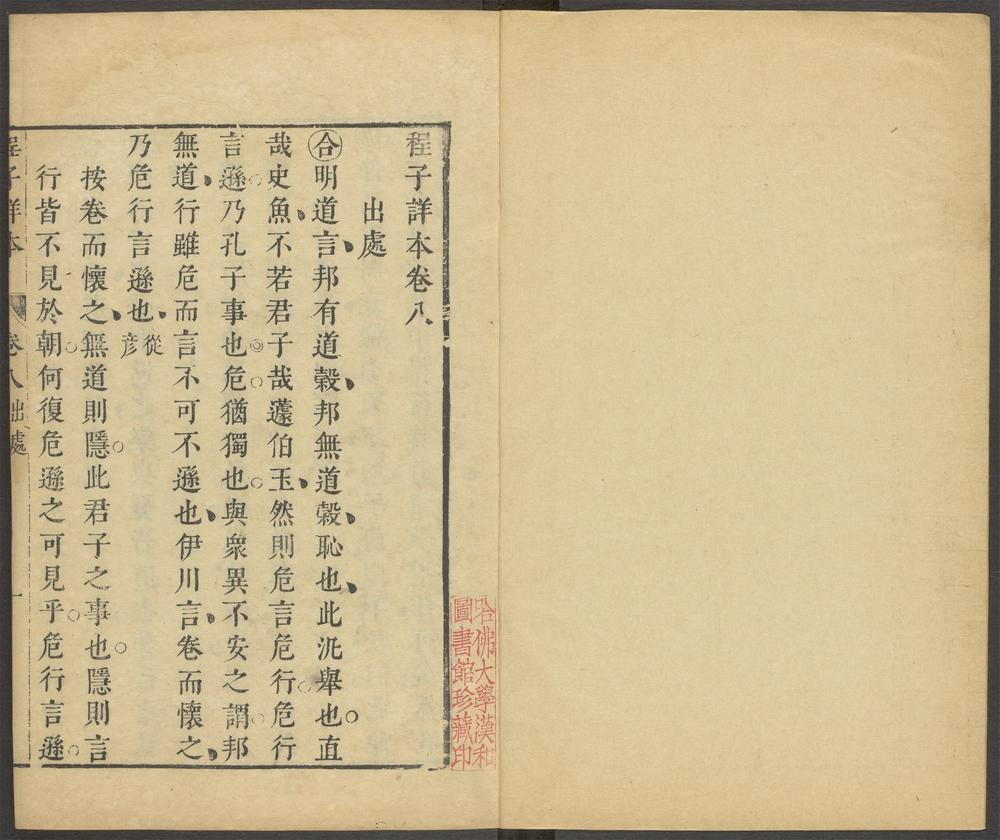 程子詳本卷八
出處
合明道言邦有道穀邦無道穀恥也此汎舉也直
哉史魚不若君子哉蘧伯玉然則危言危行危行
言遜乃孔子事也危猶獨也與衆異不安之謂邦
無道行雖危而言不可不遜也伊川言卷而懷之
乃危行言遜也從彥
按卷而懷之無道則隱此君子之事也隱則言
行皆不見於朝何復危遜之可見乎危行言遜
程子詳本 卷八出處 一
哈佛大學漢和
圖書館珍藏印